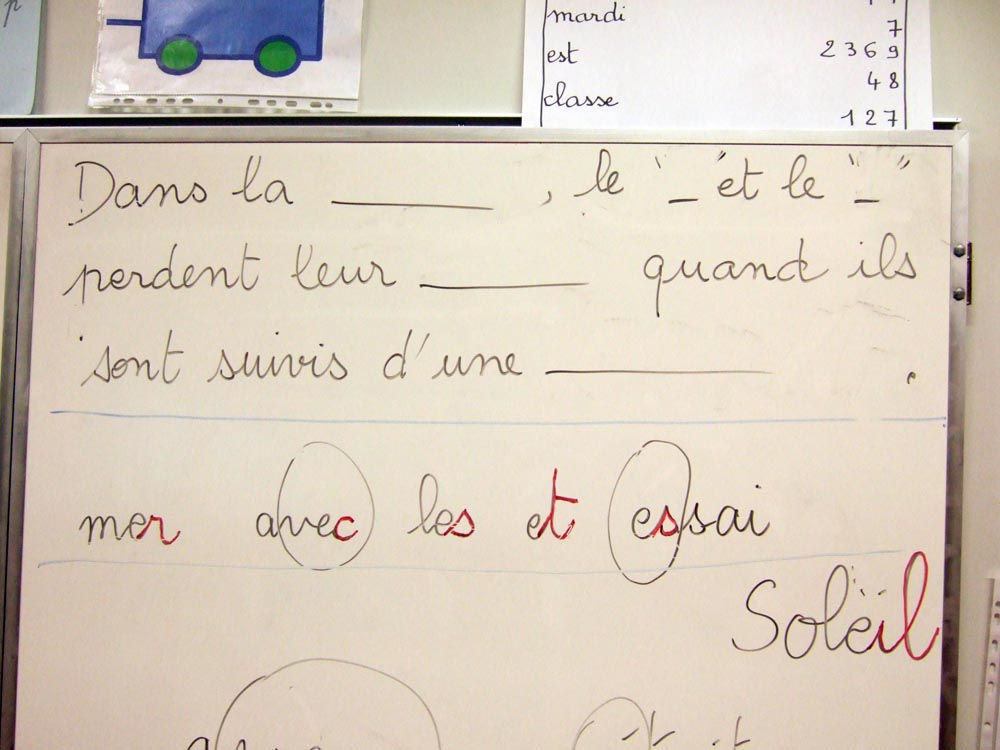 p
mardi
7
est 2369
48
classe
127
Dans la ______ , le "_" et le "_"
perdent leur ______ quand ils
sont suivis d'une ______ .
mer avec les et essai
Soleil